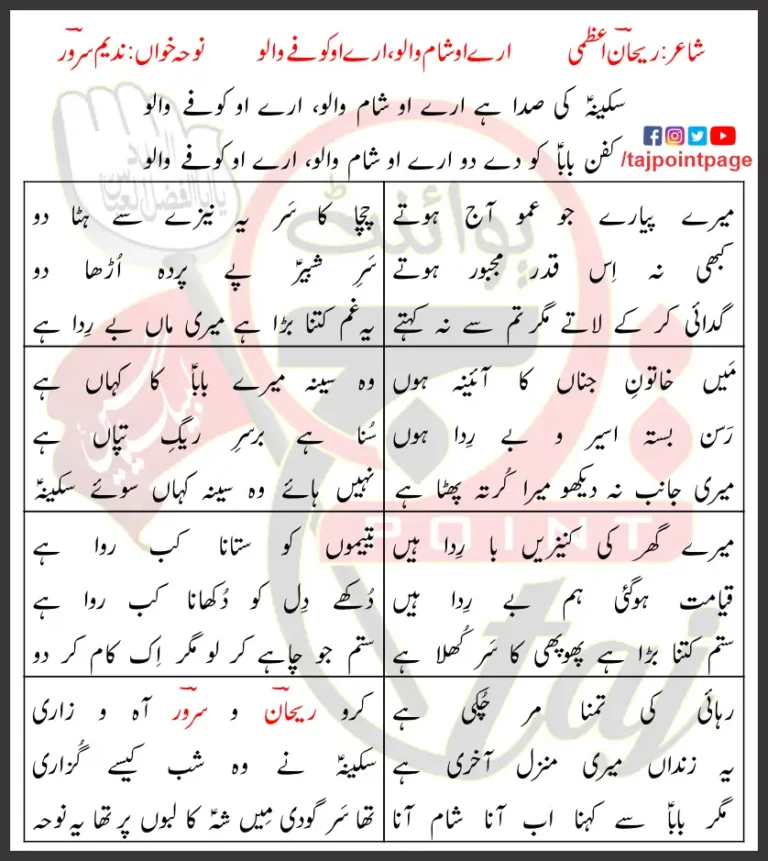 شاعر: ریحان اعظمی ارے او شام والو، ارے او کوفے والو نوحہ خواں: ندیم سرور
سکینہؑ کی صدا ہے ارے او شام والو، ارے او کوفے والو
کفن باباؑ کو دے دو ارے او شام والو، ارے او کوفے والو
/tajpointpage
میرے پیارے جو عمو آج ہوتے
کبھی نہ اِس قدر مجبور ہوتے
گدائی کر کے لاتے مگر تم سے نہ کہتے
چچا کا سَر یہ نیزے سے ہٹا دو
سَرِ شبیرؑ پے پردہ اُڑھا دو
یہ غم کتنا بڑا ہے میری ماں بے رِدا ہے
مَیں خاتونِ جناں کا آئینہ ہوں
رَسن بستہ اسیر و بے رِدا ہوں
میری جانب نہ دیکھو میرا کُرتہ پھٹا ہے
وہ سینہ میرے باباؑ کا کہاں ہے
سُنا ہے برسرِ ریگِ تپاں ہے
نہیں ہائے وہ سینہ کہاں سوئے سکینہؑ
میرے گھر کی کنیزیں با رِدا ہیں
قیامت ہوگئی ہم بے رِدا ہیں
ستم کتنا بڑا ہے پھوپھی کا سَر کُھلا ہے
یتیموں کو ستانا کب روا ہے
دُکھے دِل کو دُکھانا کب روا ہے
ستم جو چاہے کر لو مگر اِک کام کر دو
رہائی کی تمنا مر چُکی ہے
یہ زنداں میری منزل آخری ہے
مگر باباؑ سے کہنا اب آنا شام آنا
کرو ریحان و سرور آہ و زاری
سکینہؑ نے وہ شب کیسے گُزاری
تھا سَر گودی مِیں شہؑ کا لبوں پر تھا یہ نوحہ
پوائنٹ
تاج
POINT
taj